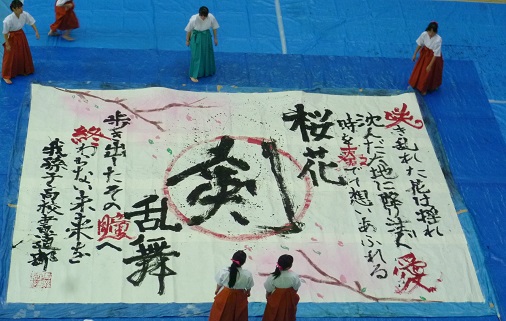 咲き乱れた花は揺れ
沈んだ大地に降り注ぐ愛
時を奏でて想いあふれる
桜花
剣
乱舞
歩き出したその瞳へ
終わらない未来を
我孫子高校書道部